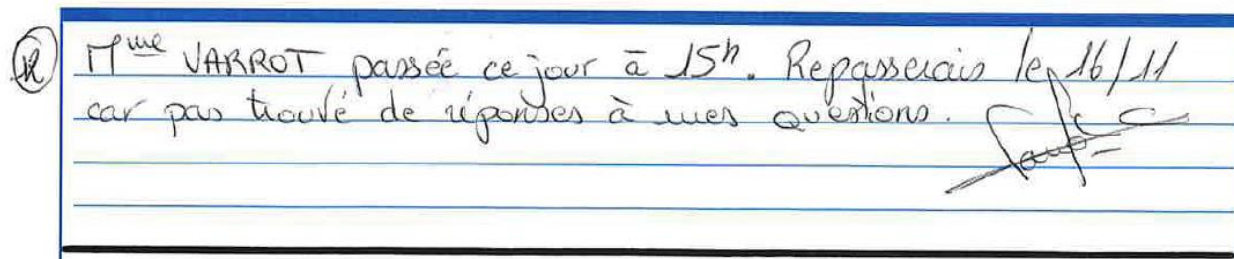 R Mme VARROT passée ce jour à 15h. Repasserais le 16/11
car pas trouvé de réponses à mes questions.